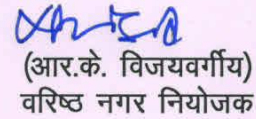 (आर.के. विजयवर्गीय)
वरिष्ठ नगर नियोजक